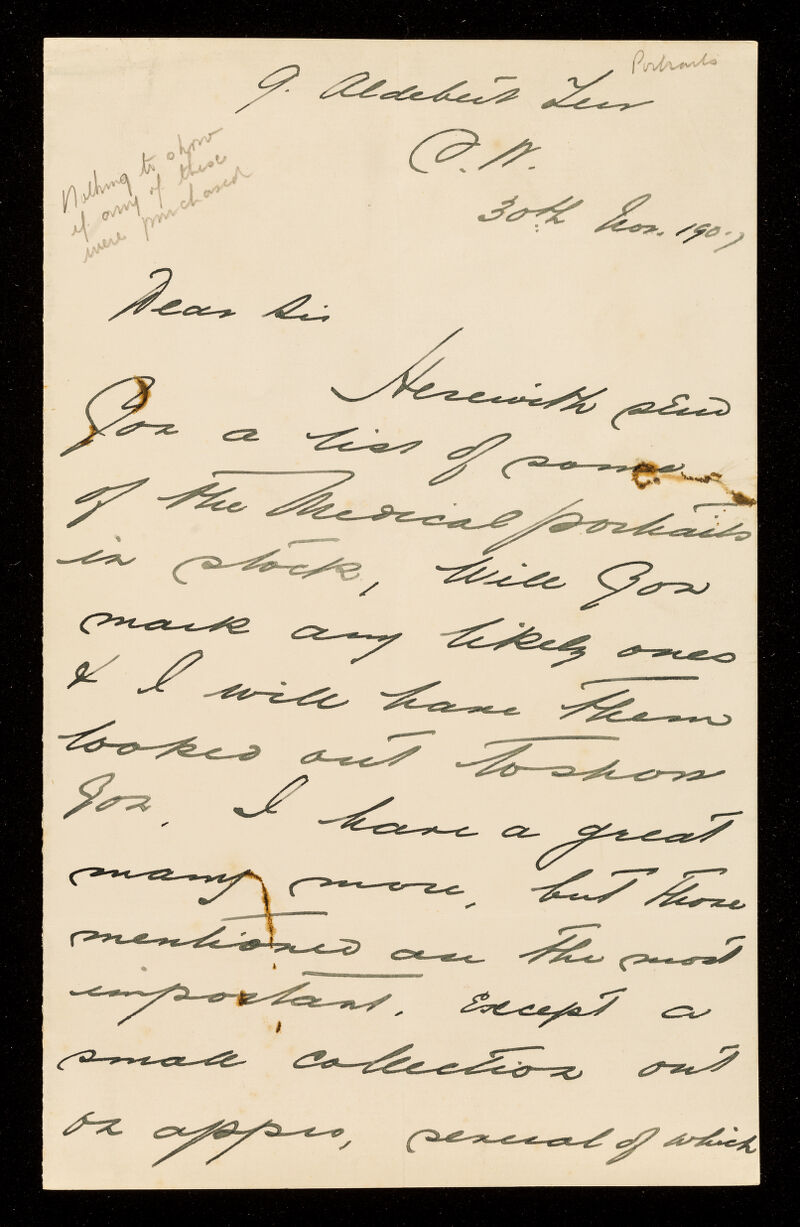 Portraits
9. Aldebert Terr
S. W.
30th Nov. 1907
Nothing to show
if any of these
were purchased
Dear Sir
Herewith send
you a list of some
of the Medical portraits
in stock, Will you
mark any likely ones
& I will have them
looked out to show
you. I have a great
many more, but those
mentioned are the most
important. Except a
small collection out
on appro, several of which